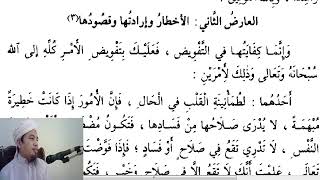 العارِضُ الثَّاني: الأخطارُ وإرادتُها وقصُودُها(٣)
وَإِنَّمَا كِفَايَتُهَا في التَّفْوِيضِ، فَعَلَيْكَ بِتَفْوِيضِ الْأَمْرِ كُلِّهِ إِلَى اللهِ
سُبْحَانَهُ وَتَعَالَى وَذَلِكَ لِأَمْرَيْنِ:
أَحَدُهُمَا: لِطُمَأْنِينَةِ الْقَلْبِ في الْحَالِ، فَإِنَّ الْأُمُورَ إِذَا كَانَتْ خَطِيرَةً
مُبْهَمَةً، لَا يُدْرَى صَلَاحُهَا مِنْ فَسَادِهَا، فَتَكُونُ
النَّفْسِ، لَا تَدْرِي تَقَعُ فِي صَلَاحٍ أَوْ فَسَادٍ؛ فَإِذَا فَوَّضْتَ
تَعَالَى، عَلِمْتَ أَنَّكَ لَا تَقَعُ إِلَّا فِي صَلَاحٍ